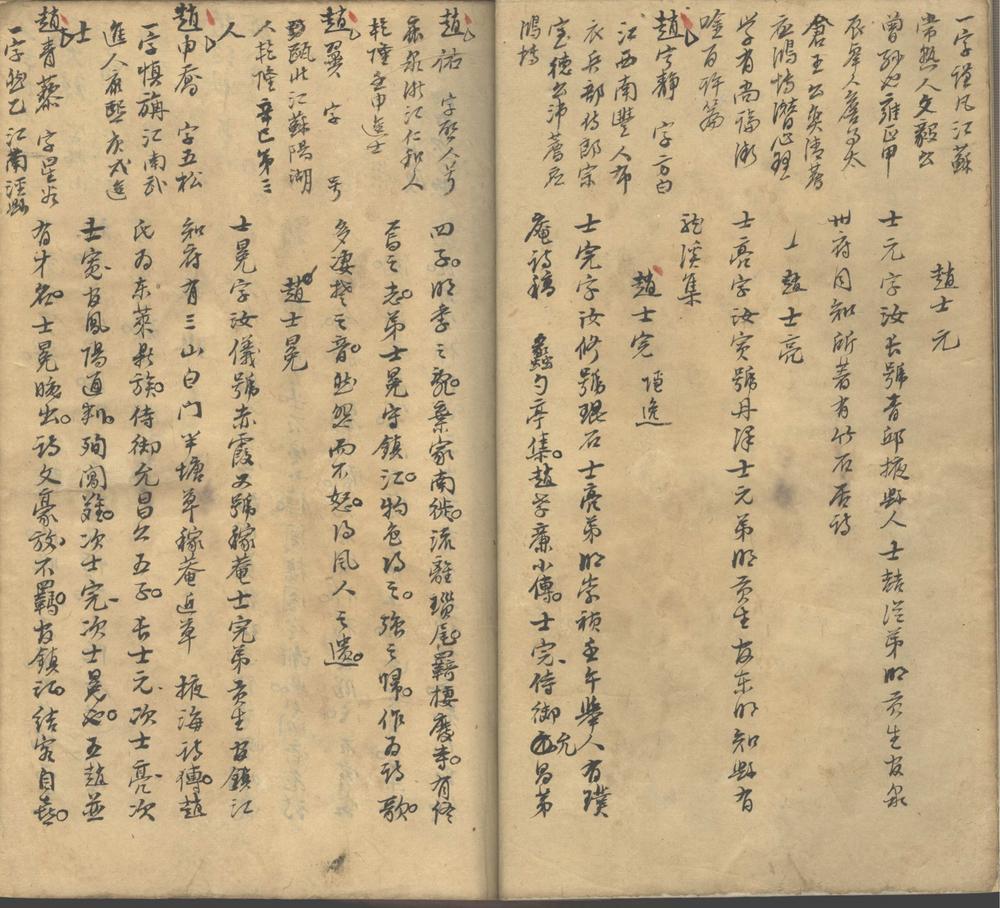 一字謹凡江蘇
常熟人文毅公
曾孫也雍正甲
辰舉人官至太
倉王公奕清薦
應鴻博潛心理
学有尚論
唫百許篇
趙宁靜 字方白
江西南豐人布
衣兵部侍郎宗
室德公沛薦应
鴻博
趙士元
士元字汝長號青邱掖縣人士喆從弟明貢生官泉
州府同知所著有竹石居詩
趙士亮
士亮字汝寅號丹澤士元弟明貢生官东明知縣有
龍溪集
趙士完 隱逸
士完字汝修號琨石士亮弟明崇禎壬午舉人有璞
庵詩稿 蠡勺亭集趙孝廉小傳士完侍御允昌第
趙祐 字啓人号
鹿泉浙江仁和人
乾隆壬申進士
趙翼 字 号
甌北江蘇陽湖
人乾隆辛巳第三
人
趙申喬 字五松
一字慎旃江南武
進人康熙庚戌進
士
趙青藜 字星谷
一字然乙江南涇縣
四子明季之亂棄家南徙流離瑣尾羈棲蕭寺有終
焉之志弟士冕守鎮江物色得之强之歸作为詩歌
多凄楚之音然怨而不怒得风人之遺
趙士冕
士冕字汝儀號赤霞又號稼菴士完弟貢生官鎮江
知府有三山白门半塘草稼菴近草 掖海詩傳趙
氏为东萊鼎族侍御允昌公五子長士元次士亮次
士寬官鳳陽通判殉闖難次士完次士冕也五趙並
有才名士冕晚出詩文豪放不羈官鎮江結客自喜